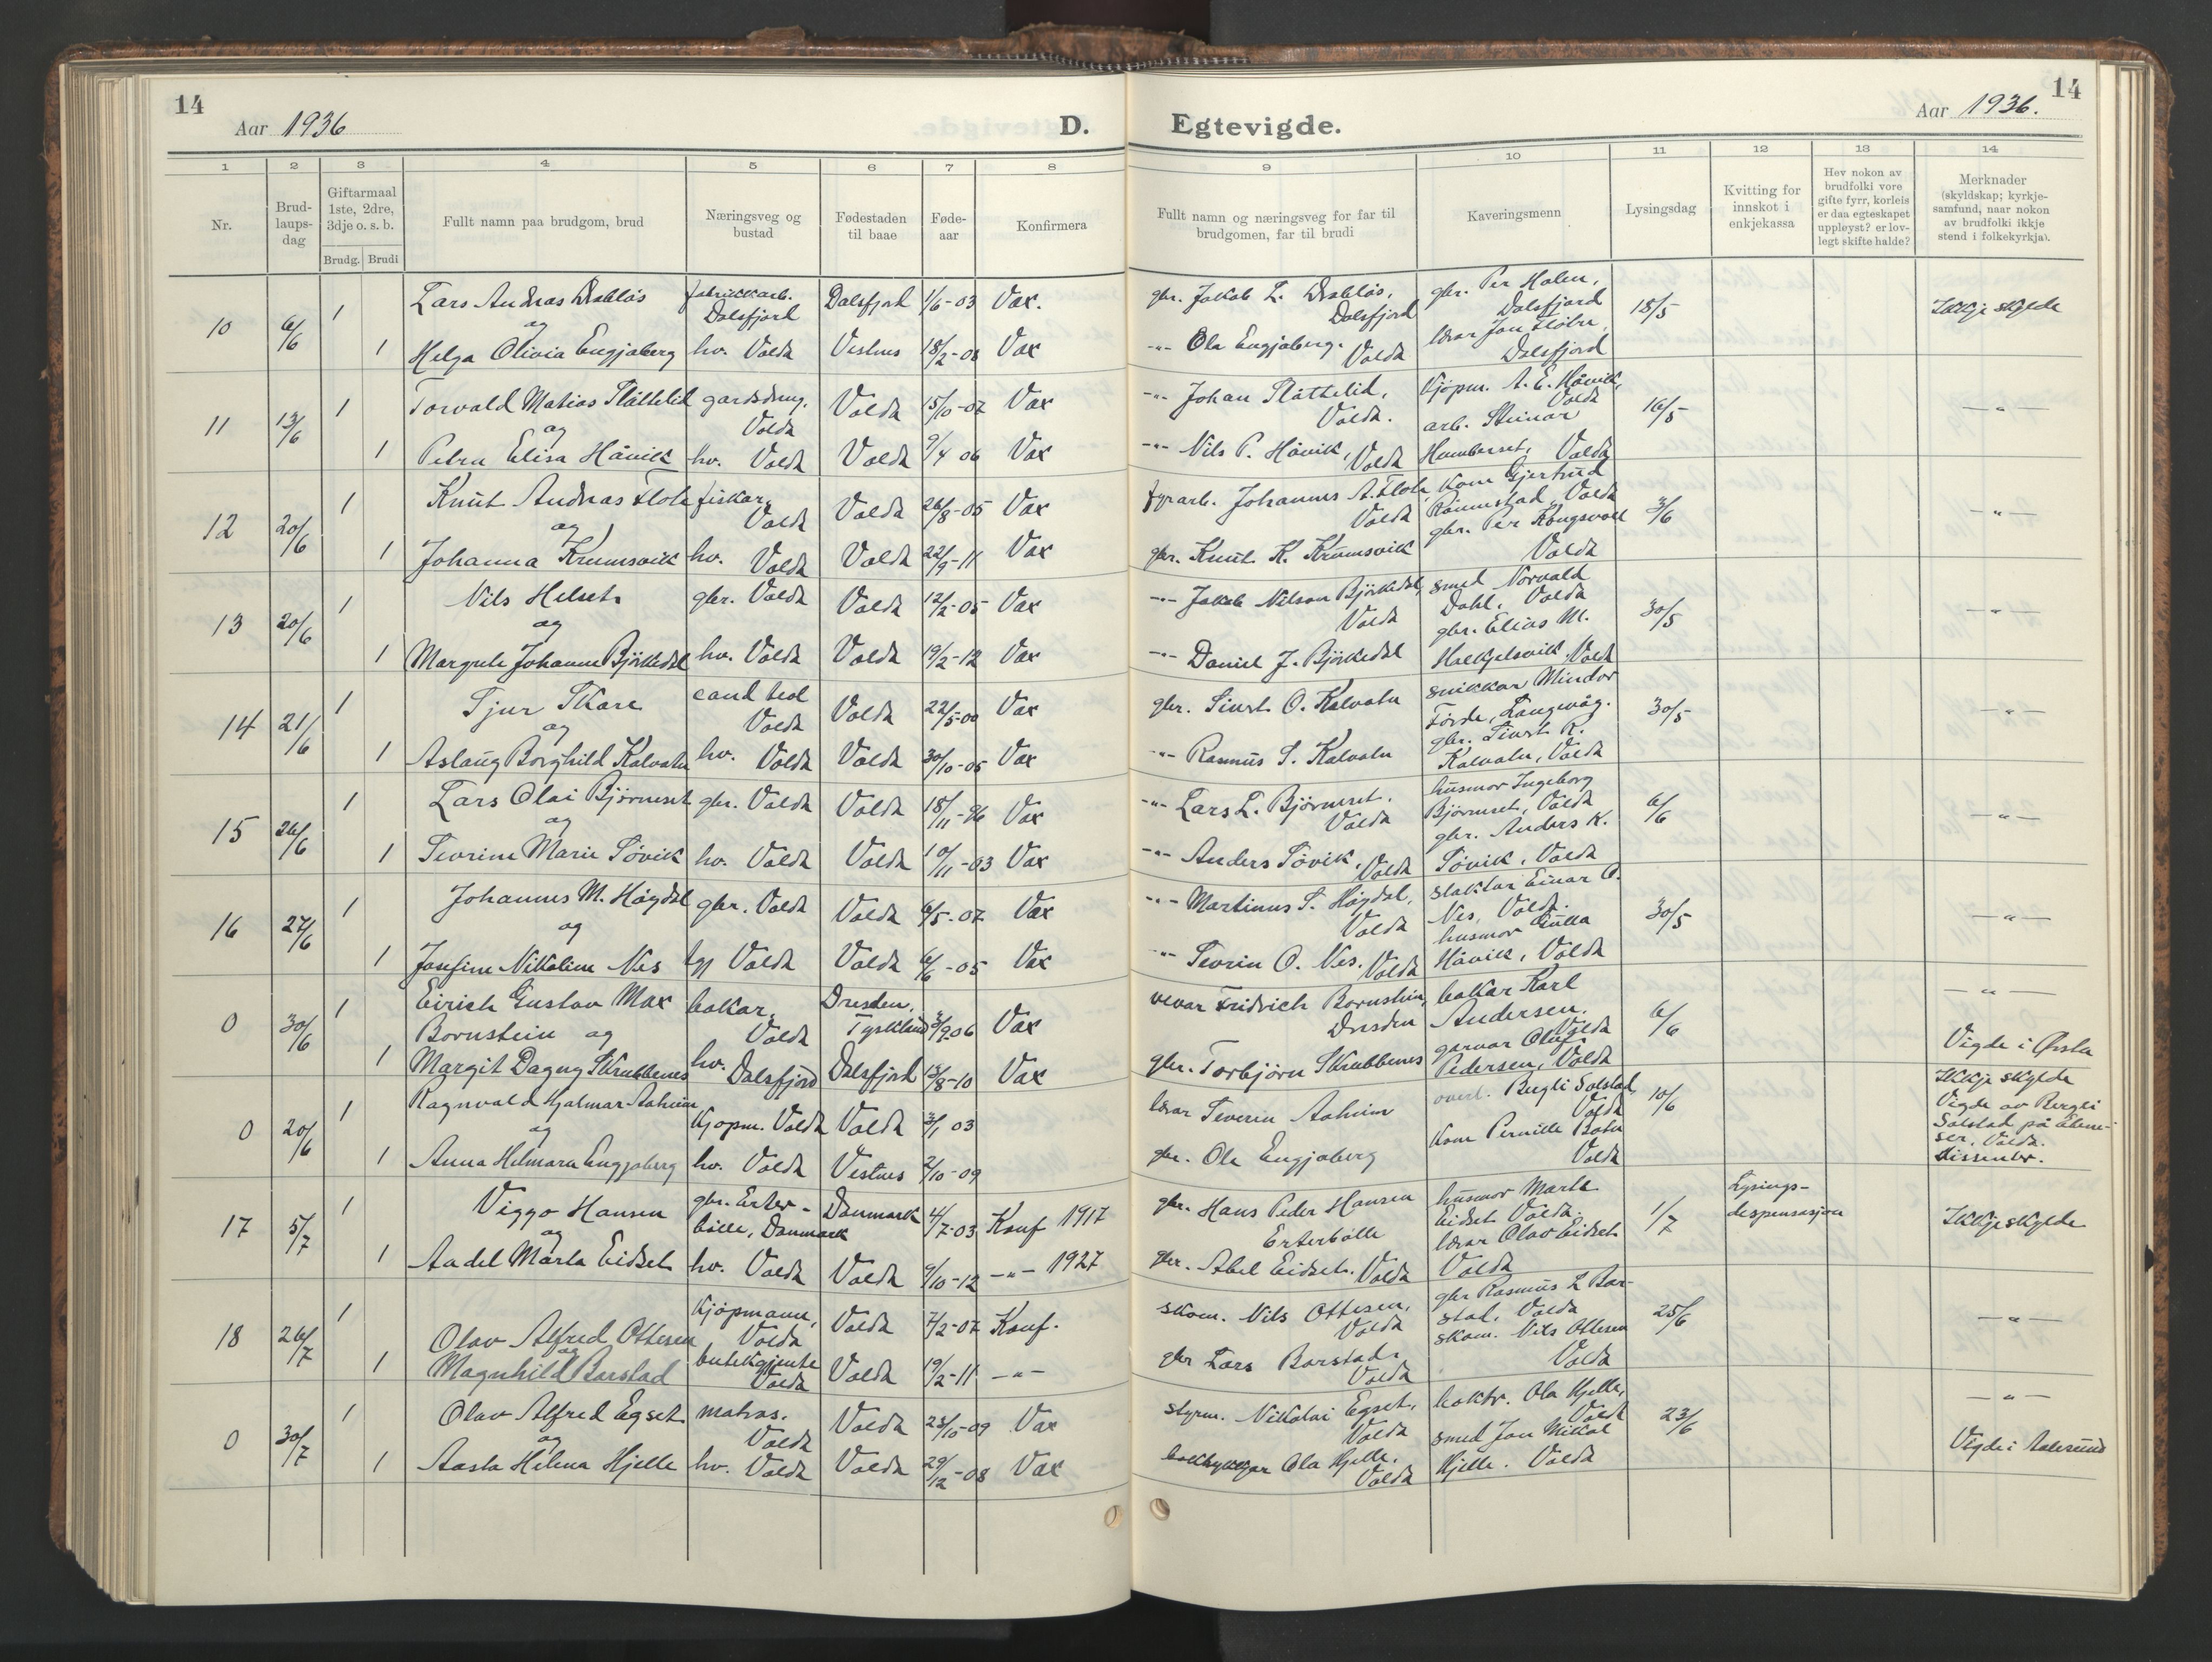 14
Aar 1936
D.
Egtevigde.
Aar 1936.
14
1 2 3 4 5 6 7 8 9 10 11 12 13 14
Nr.
Brud-
laups-
dag
Giftarmaal
1ste, 2dre,
3dje o. s. b.
Brudg. Brudi
Fullt namn paa brudgom, brud
Næringsveg og
bustad
Fødestaden
til baae
Føde-
aar
Konfirmera
Fullt namn og næringsveg for far til
brudgomen, far til brudi
Kaveringsmenn
Lysingsdag
Kvitting for
innskot i
enkjekassa
Hev nokon av
brudfolki vore
gifte fyrr, korleis
er daa egteskapet
uppløyst? er lov-
legt skifte halde?
Merknader
(skyldskap; kyrkje-
samfund, naar nokon
av brudfolki ikkje
stend i folkekyrkja).
10 6/6 1 Lars Andreas Drabløs fabrikkarb. Dalsfjord Dalsfjord 1/6-03 Vax. gbr. Jakob L. Drabløs, Dalsfjord gbr. Per Holen, Dalsfjord 18/5 Ikkje skylde
og
1 Helga Olivia Engjaberg hv. Volda Vestnes 18/2-08 Vax -"- Ola Engjaberg. Volda lærar Jon Dalsfjord
11 13/6 1 Torvald Matias Slåttelid gardsdreng. Volda Volda 15/10-07 Vax -"- Johan Slåttelid, Volda. Kjøpm. A. E. Håvik, Volda 16/5 -"-
og
1 Petra Elisa Håvik hv. Volda Volda 9/4 06 Vax -"- Nils P. Håvik, Volda arb. Steinar Humberset, Volda
12 20/6 1 Knut Andreas Flote fiskar, Volda Volda 26/8-05 Vax fyrarb. Johannes A. Flote, Volda Kone Gjertrud Rønnestad, Volda 3/6 -"-
og
1 Johanna Krumsvik hv. Volda Volda 22/9-11 Vax gbr. Knut K. Krumsvik gbr. Per Kongsvoll Volda
13 20/6 1 Nils Helset gbr. Volda Volda 12/2-05 Vax -"- Jakob Nilson Bjørkedal, Volda smed Norvald Dahl, Volda 30/5 -"-
og
1 Margrete Johanne Bjørkedal hv. Volda Volda 19/2-12 Vax -"- Daniel J. Bjørkedal gbr. Elias M. Halkjelsvik, Volda
14 21/6 1 Sjur Skare cand teol Volda Volda 22/5-00 Vax gbr. Sivert O. Kalvatn snikkar Mindor Førde, Langevåg. 30/5 -"-
og
1 Aslaug Borghild Kalvatn hv. Volda Volda 30/10-05 Vax -"- Rasmus S. Kalvatn gbr. Sivert R. Kalvatn, Volda
15 26/6 1 Lars Olai Bjørneset gbr. Volda Volda 18/11-96 Vax -"- Lars L. Bjørneset. Volda husmor Ingeborg Bjørneset, Volda 6/6 -"-
og
1 Sevrine Marie Søvik hv. Volda Volda 10/11-03 Vax -"- Anders Søvik, Volda gbr. Anders K. Søvik, Volda
16 27/6 1 Johannes M. Høydal gbr. Volda Volda 6/5-07 Vax -"- Martinus S. Høydal, Volda slaktar Einar O. Nes, Volda. 30/5 -"-
og
1 Josefine Nikoline Nes Volda Volda 6/6-05 Vax -"- Sevrin O. Nes. Volda husmor Gutta Håvik, Volda
0 30/6 1 Eirich Gustav Max Bornstein og bakar, Volda Dresden, Tyskland 3/9-06 Vax vevar Fridrich Bornstein, Dresden bakar Karl Andersen. Volda 6/6 -"-
1 Margit Dagny Skrubbenes hv. Dalsfjord Dalsfjord 13/8-10 Vax gbr. Torbjørn Skrubbenes garvar Oluf Pedersen, Volda Vigde i Ørsta
0 20/6 1 Ragnvald Hjalmar Aaheim Kjøpm. Volda Volda 3/1 03 lærar Severin Aaheim overl. Bugli Solstad, Volda 10/6 Ikkje skylde
og
1 Anna Helmara Engjaberg hv. Volda Vestnes 2/10-09 gbr. Ole Engjaberg Kone Pernille Botn Volda Vigde av Solstad på Volda. dissentr.
17 5/7 1 Viggo Hansen gbr. Erter-bølle, Danmark Danmark 4/7-03 Konf 1917 gbr. Hans Peder Hansen Erterbølle husmor Marta Eidset Volda. 1/7 Lysings-despensasjon Ikkje skylde
og
1 Aadel Marta Eidset hv. Volda Volda 9/10-12 -"- 1927 gbr. Abel Eidset. Volda lærar Olav Eidset Volda
18 26/7 1 Olav Alfred Ottesen Kjøpmann, Volda Volda 7/2-07 Konf. skom. Nils Ottesen, Volda gbr Rasmus L Bar-stad, Volda 25/6 -"-
og
1 Magnhild Barstad butikgjente Volda Volda 19/2-11 -"- gbr Lars Barstad. Volda skom. Nils Ottesen Volda
0 30/7 1 Olav Alfred Egset matros. Volda Volda 25/10-09 Vax styrm. Nikolai Egset, Volda boktr. Ola Hjelle, Volda 23/6 -"-
og
1 Aasta Helena Hjelle hv. Volda Volda 29/12-08 Vax Ola Hjelle. Volda smed Jon Mikal Hjelle. Volda Vigde i Aalesund